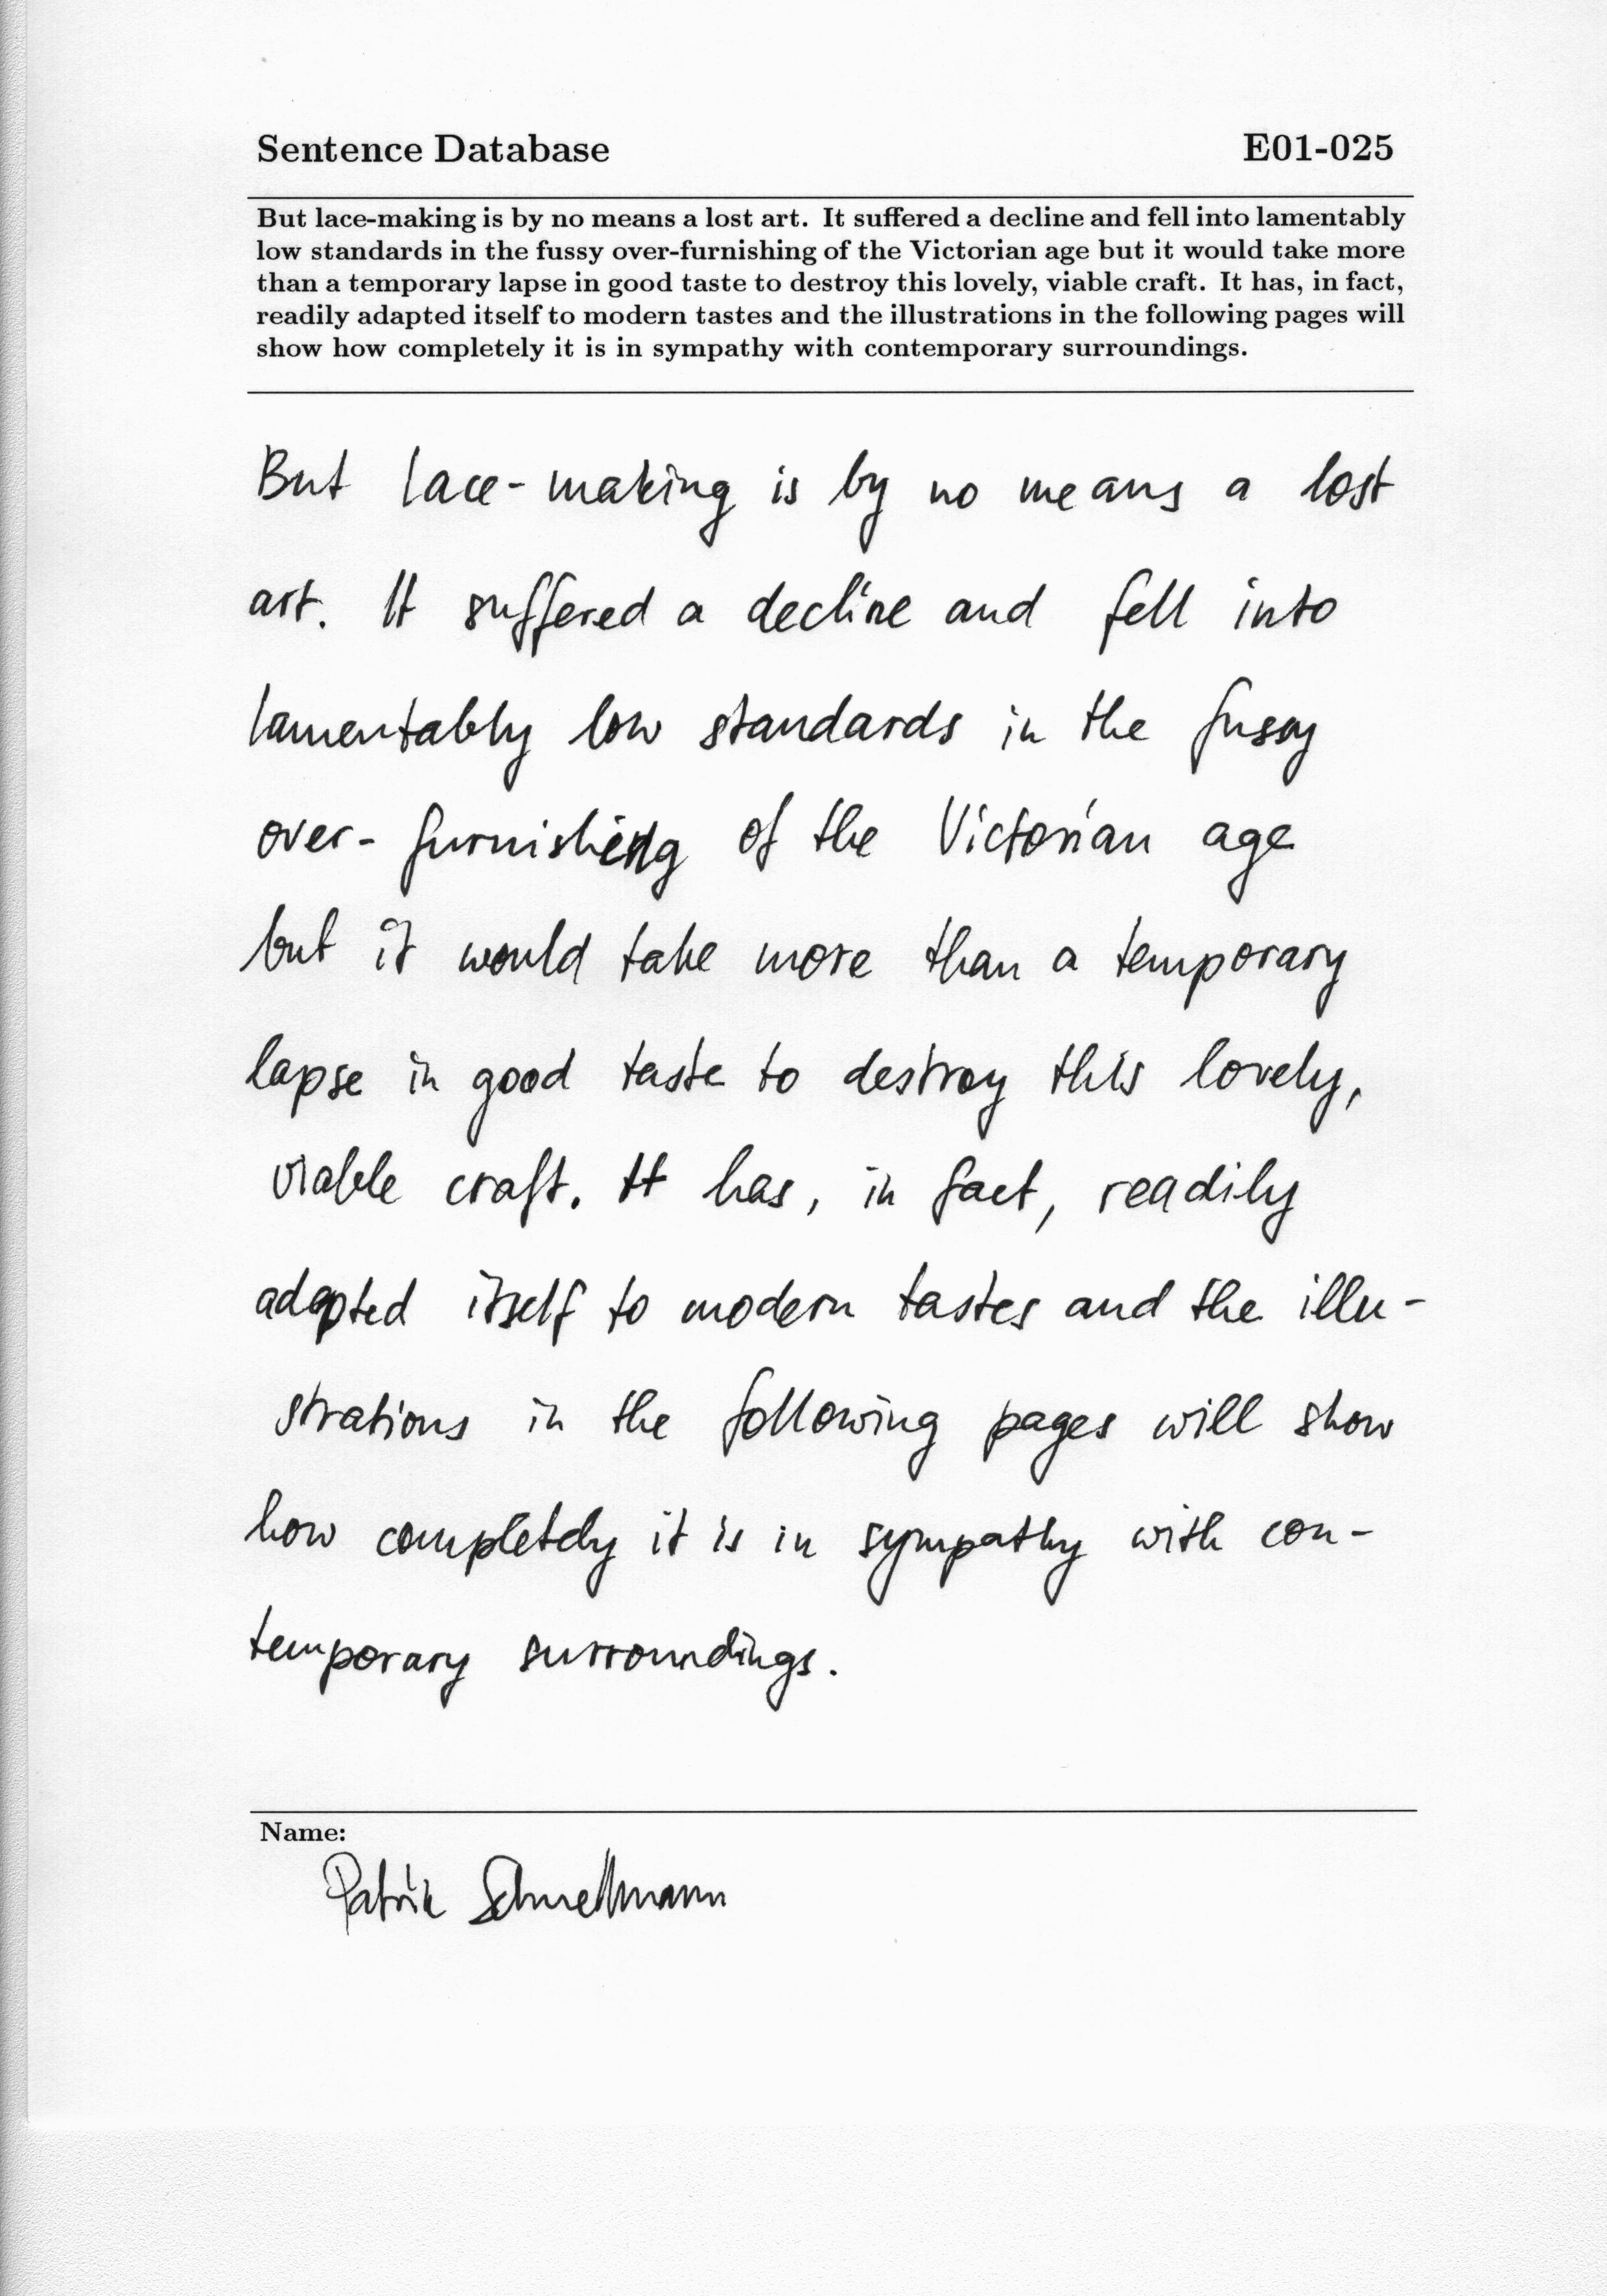 Sentence Database E01-025
But lace-making is by no means a lost art. It suffered a decline and fell into lamentably
low standards in the fussy over-furnishing of the Victorian age but it would take more
than a temporary lapse in good taste to destroy this lovely, viable craft. It has, in fact,
readily adapted itself to modern tastes and the illustrations in the following pages will
show how completely it is in sympathy with contemporary surroundings.
But lace-making is by no means a lost
art. It suffered a decline and fell into
lamentably low standards in the fussy
over-furnishing of the Victorian age
but it would take more than a temporary
lapse in good taste to destroy this lovely,
viable craft. It has, in fact, readily
adapted itself to modern tastes and the illu-
strations in the following pages will show
how completely it is in sympathy with con-
temporary surroundings.
Name:
Patrik Schnellmann